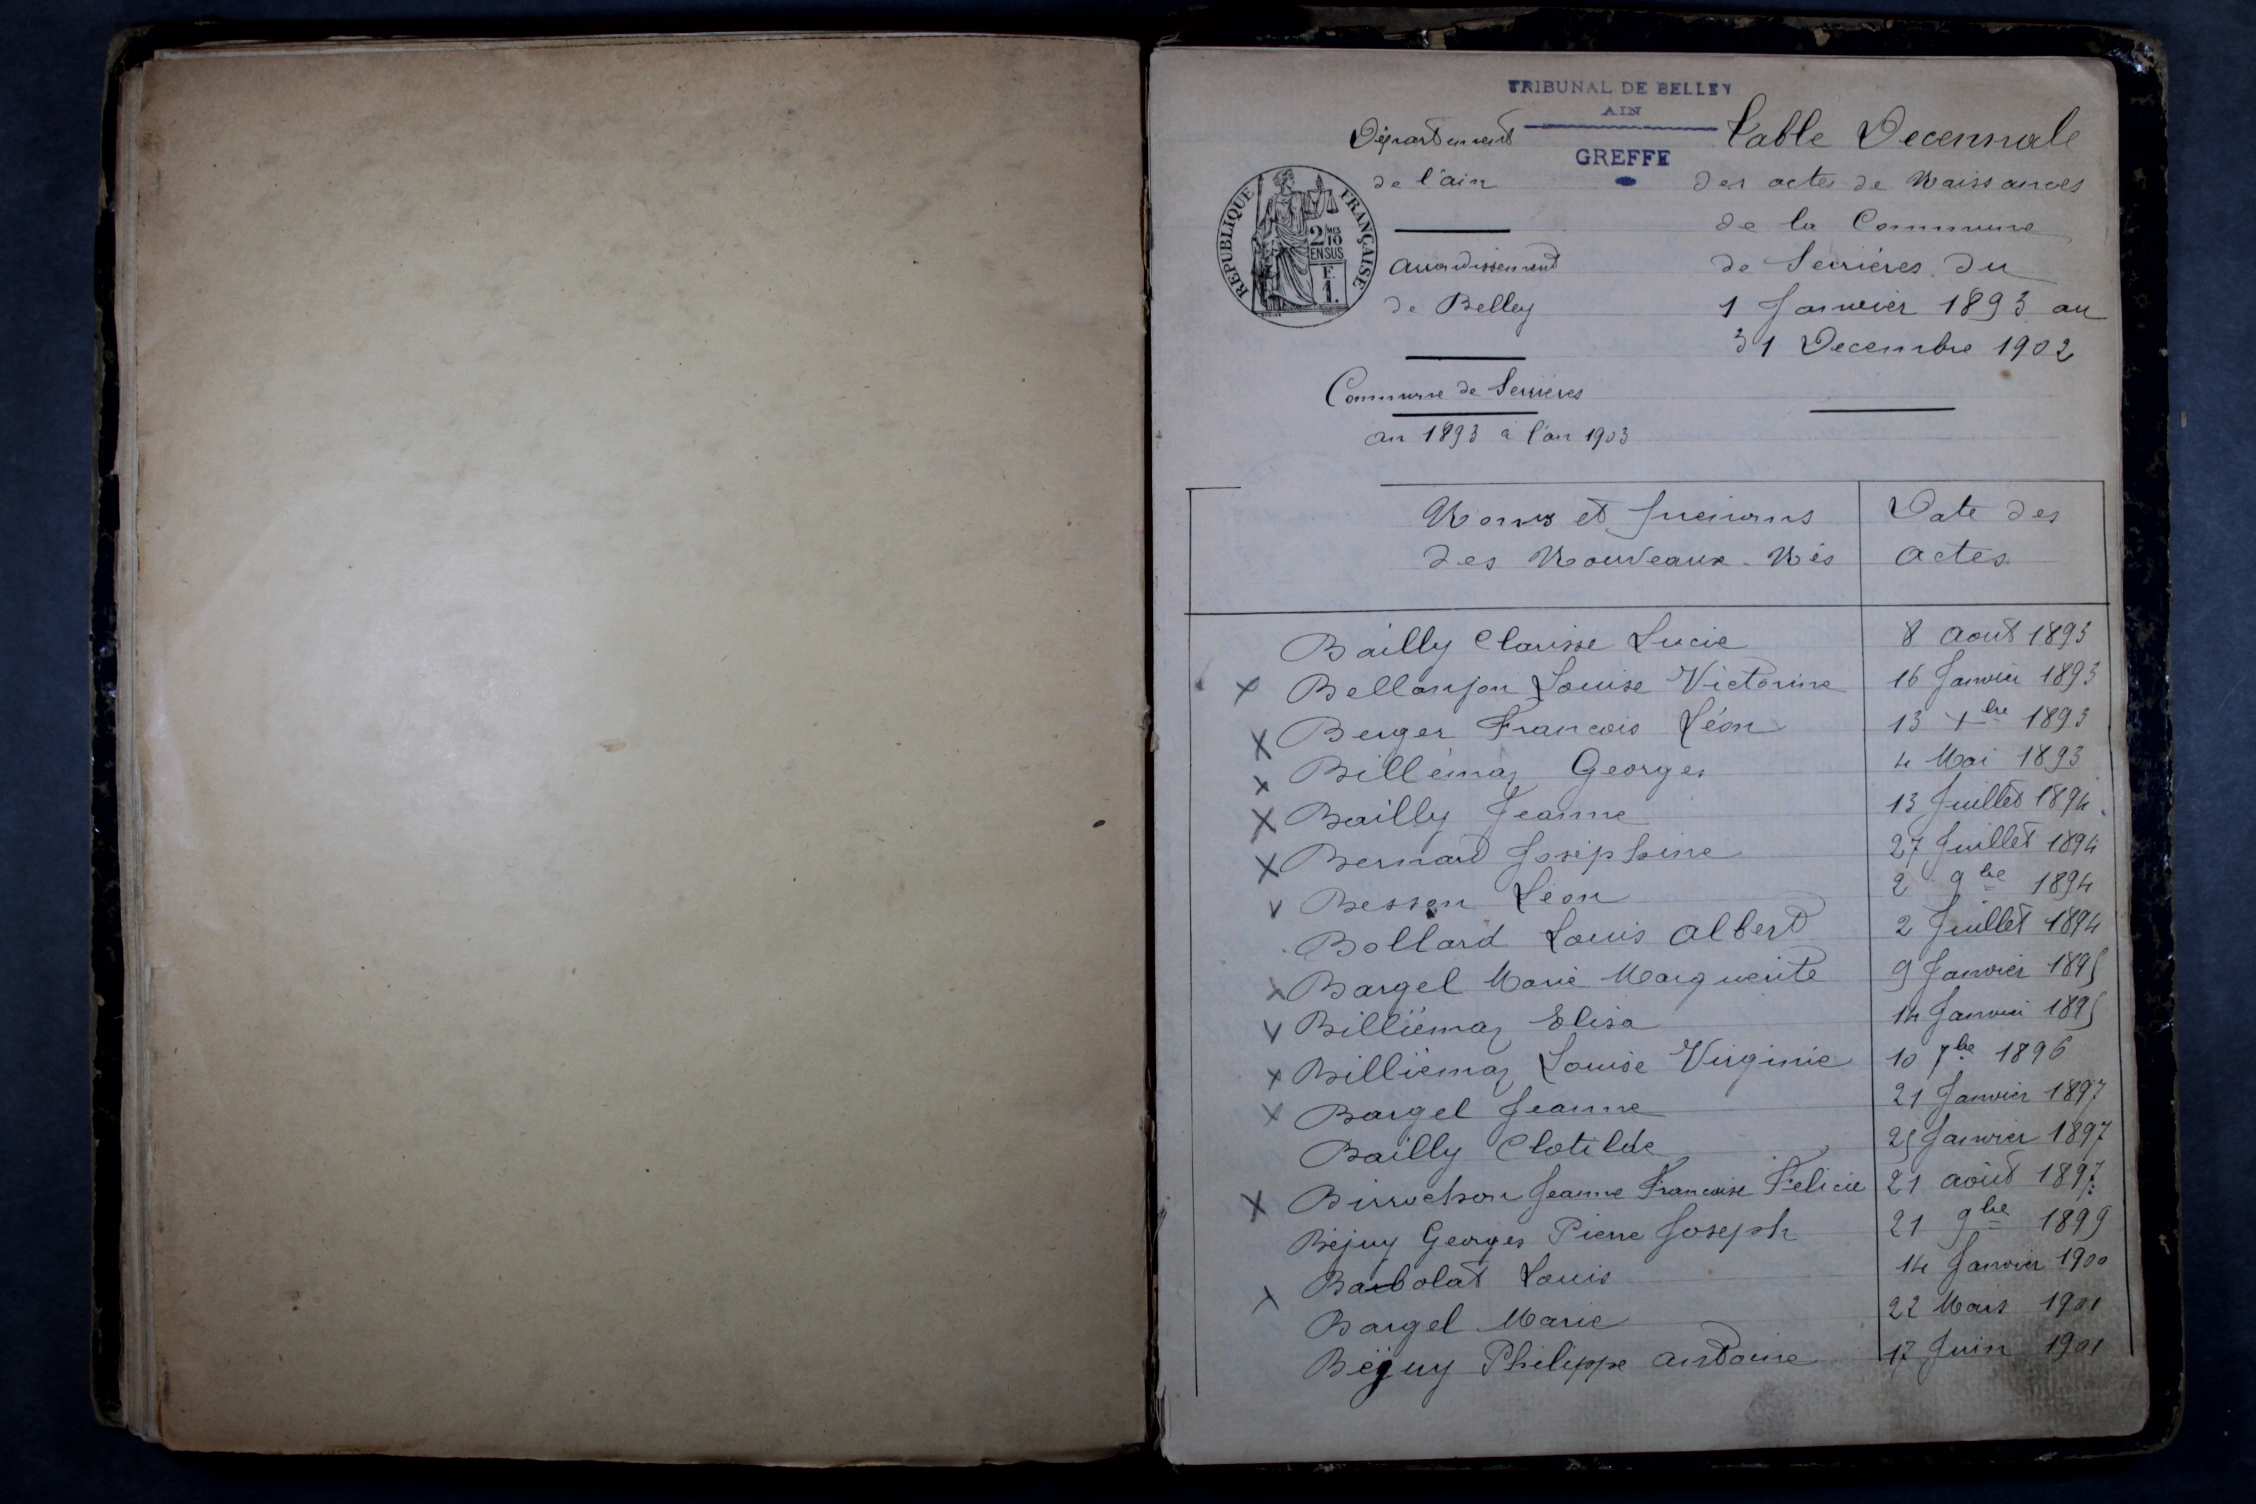 TRIBUNAL DE BELLEY
AIN
GREFFE
Département
de l'ain
RÉPUBLIQUE FRANÇAISE
2/10
EN SUS
F.
1.
arrondissement
de Belley
Commune de Serrières
an 1893 à l'an 1903
Table Decennale
des actes de Naissances
de la Commune
de Serrières du
1 Janvier 1893 au
31 Decembre 1902
Noms et prenoms
des Nouveaux-Nés
Date des
actes
Bailly Clarisse Lucie 8 aout 1893
x Bellanjon Louise Victorine 16 Janvier 1893
x Berger Francois Léon 13 Xbre 1893
x Billémaz Georges 4 Mai 1893
x Bailly Jeanne 13 Juillet 1894
x Bernard Joséphine 27 Juillet 1894
v Besson Léon 2 9bre 1894
Bollard Louis albert 2 Juillet 1894
x Bargel Marie Marguerite 9 Janvier 1895
v Billiémaz Elisa 14 Janvier 1895
x Billiémaz Louise Virginie 10 7bre 1896
x Bargel Jeanne 21 Janvier 1897
Bailly Clotilde 25 Janvier 1897
x Birrochon Jeanne Francoise Felicie 21 août 1897
Béjuy Georges Pierre Joseph 21 9bre 1899
x Barbolat Louis 14 Janvier 1900
Bargel Marie 22 Mars 1901
Béjuy Philippe antoine 17 Juin 1901